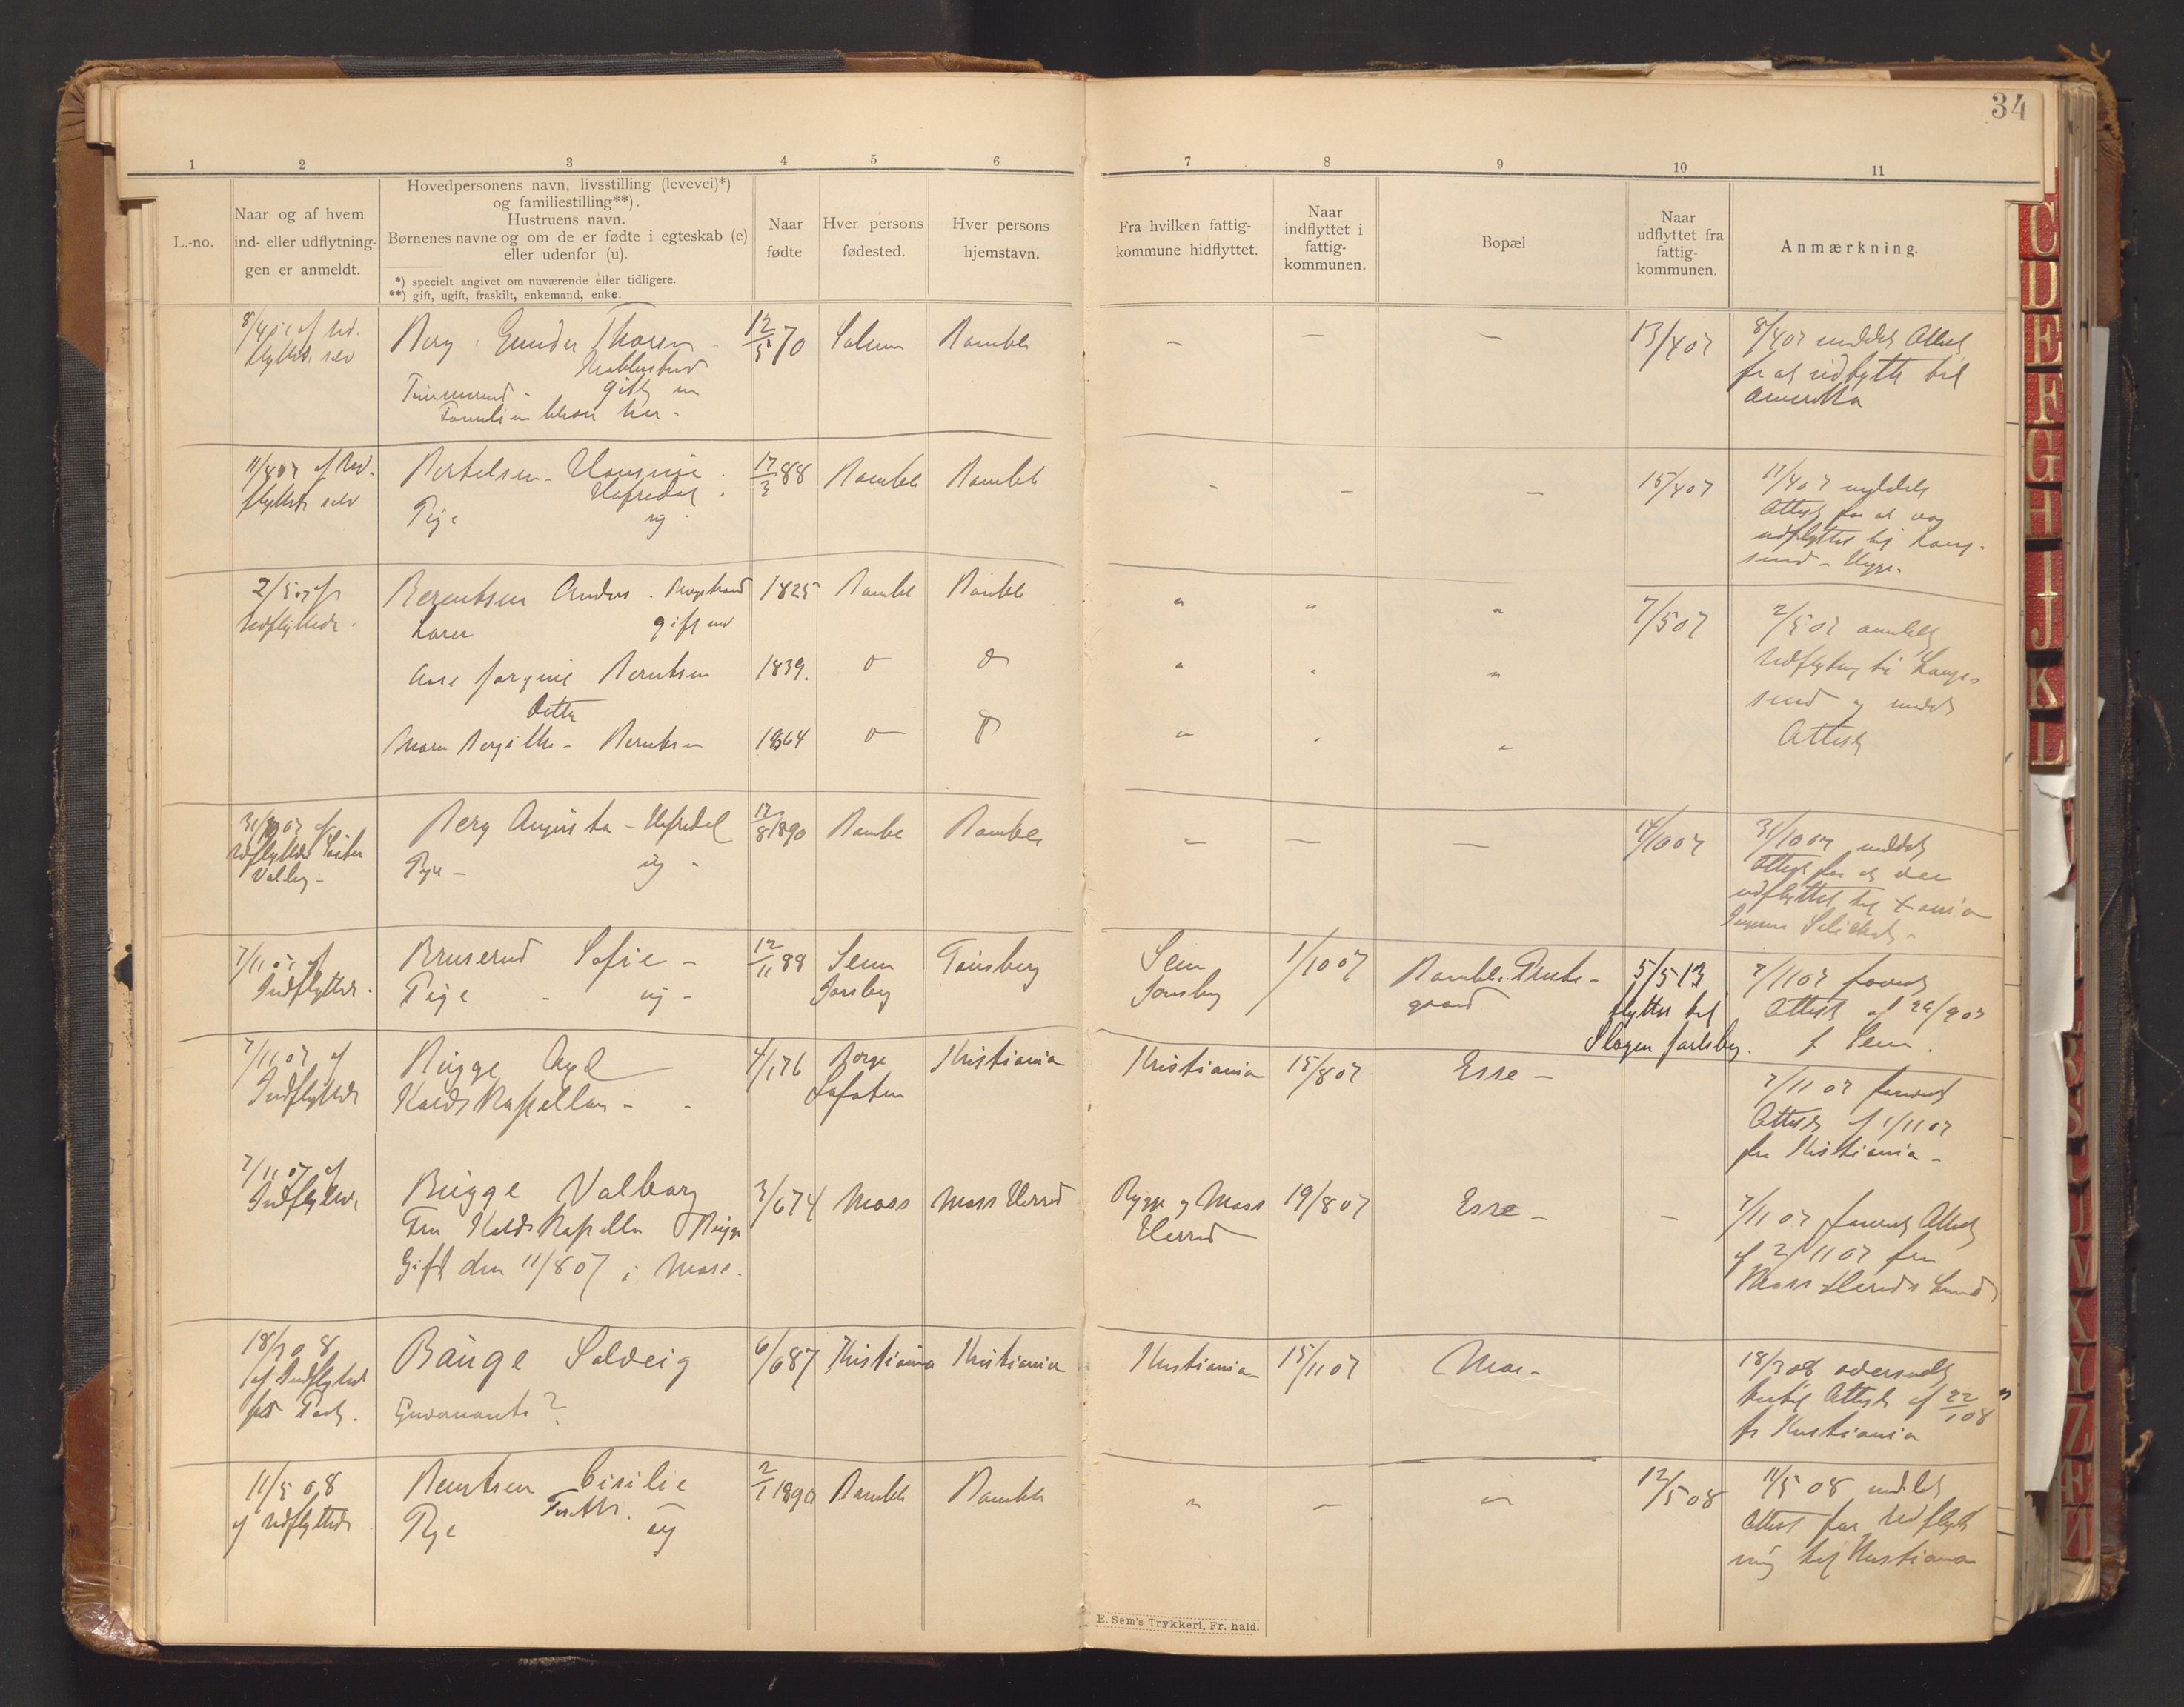 34
1 2 3 4 5 6 7 8 9 10 11
L.-no.
Naar og af hvem
ind- eller udflytnin-
gen er anmeldt.
Hovedpersonens navn, livsstilling (levevei)*)
og familiestilling**).
Hustruens navn.
Børnenes navne og om de er fødte i egteskab (e)
eller udenfor (u).
*) specielt angivet om nuværende eller tidligere.
**) gift, ugift, fraskilt, enkemand, enke.
Naar
fødte
Hver persons
fødested.
Hver persons
hjemstavn.
Fra hvilken fattig-
kommune hidflyttet.
Naar
indflyttet i
fattig-
kommunen.
Bopæl
Naar
udflyttet fra
fattig-
kommunen.
Anmærkning.
af Ud-
flyttede selv
Berg Gunder Thorsen
gift
Familien her
12/5 70
Solum
Bamble
–
–
–
13/4 07
8/4 07 meddelt Attest
for at udflytte til
Amerika
11/4 07 af Ud-
flyttede selv
Bertelsen
Hafredal
Pige ug
17/3 88
Bamble
Bamble
–
–
–
15/4 07
11/4 07 meddelt
Attest for at
udflyttet til Lange-
sund
2/5 07 af
Udflyttede.
Berentsen Anders
gift
1825
Bamble
Bamble
"
"
"
7/5 07
2/5 07 anmeldt
Udflytning til Lange-
sund og meddelt
Attest
Jørgine Berntsen
1839.
Datter
Maren Bergitte – Berntsen
1864
31/10 07 af
Udflyttedes
Valborg –
Berg Augusta – Hafredal
Pige – ug –
17/8 1890
Bamble
Bamble
–
–
–
4/10 07
31/10 07 meddelt
Attest for at
udflyttet til Xania
7/11 07 af
Indflyttede.
Bruserud Sofie –
Pige – ug –
12/11 88
Sem
Jarlsberg
Tønsberg
Sem
Jarlsberg
1/10 07
Bamble Præste-
gaard
5/5 13
flyttet til
Slagen Jarlsberg.
7/11 07
Attest af
f Sem.
7/11 07 af
Indflyttede
Bugge Axel
Kaldskapellan –
4/1 76
Borge
Lofoten
Kristiania
Kristiania
15/8 07
Esse –
7/11 07 forevist
Attest af 1/11 07
fra Kristiania –
7/11 07 af
Indflyttede
Bugge Valborg
Fru Kaldskapellan Bugge
Gift den 11/8 07 i Moss.
3/6 74
Moss
Moss Herred
Rygge og Moss
Herred
19/8 07
Esse –
–
7/11 07 forevist Attest
af 2/11 07 fra
Moss Herreds
18/3 08
af Indflyttede
pr Post.
Bauge Solveig
Guvernante?
6/6 87
Kristiania
Kristiania
Kristiania
15/11 07
Moe –
18/3 08 oversendt
hertil Attest af 22/1 08
fr Kristiania
11/5 08
af Udflyttede
Berntsen Cisilie
Pige ug
2/1 1890
Bamble
Bamble
"
–
"
12/5 08
11/5 08 meddelt
Attest for Udflyt-
ning til Kristiania
E. Sem's Trykkeri, Fr. hald.
C
D
E
F
G
H
I
J
K
L